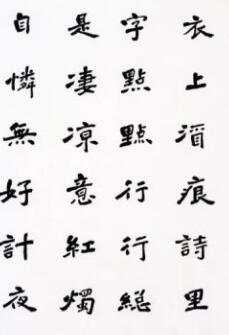 衣上酒痕詩里
字點點行行總
是凄凉意紅燭
自憐無好計夜